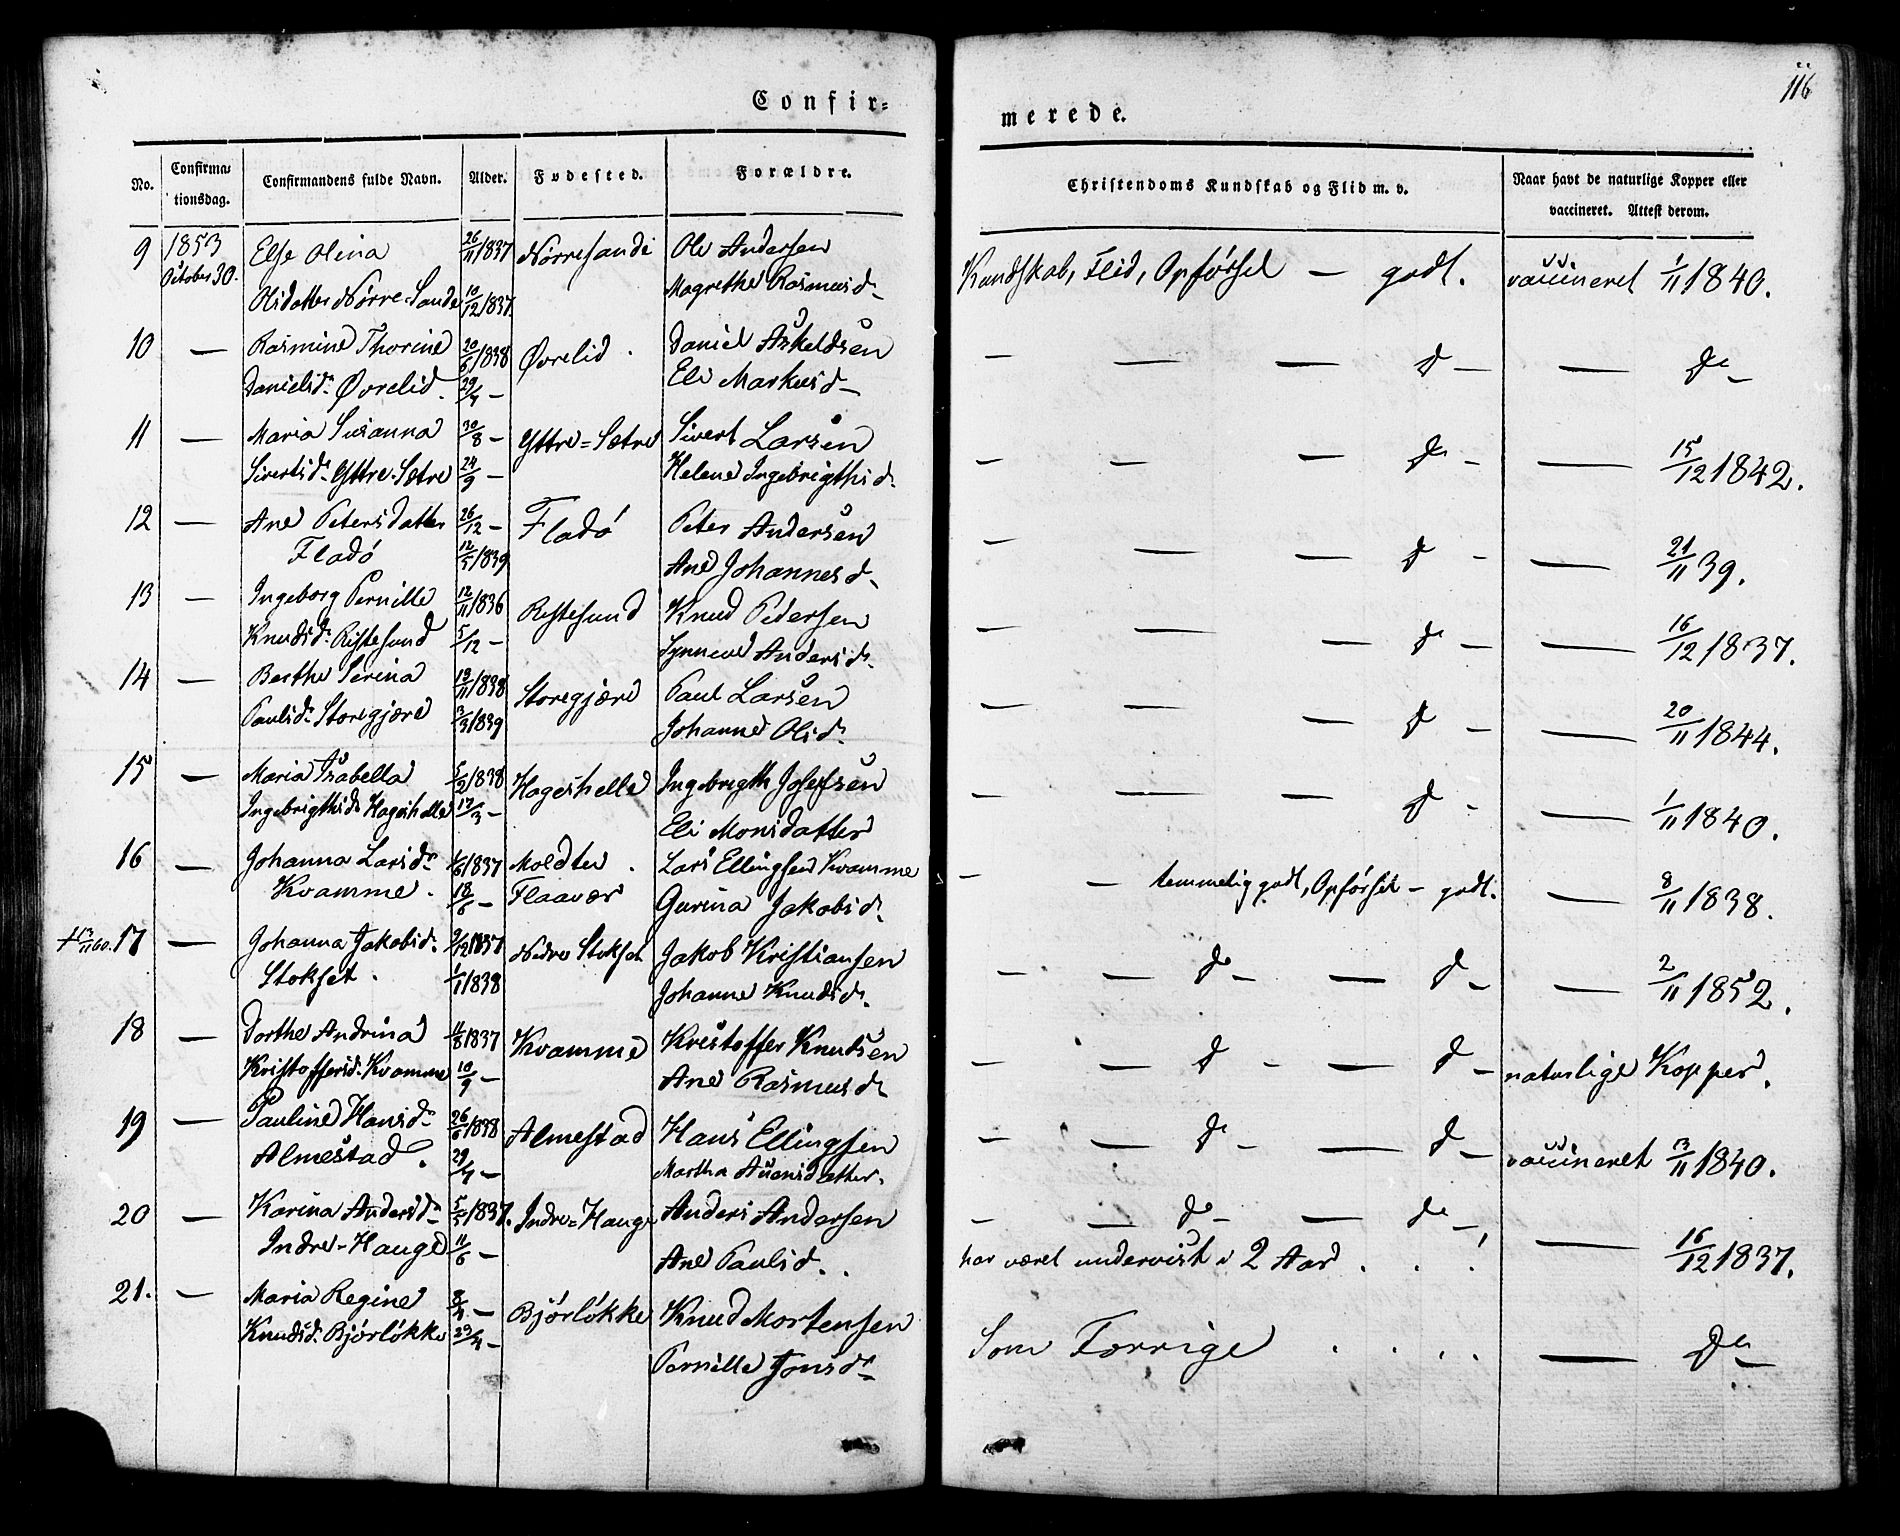 116
Confir=
merede.
No.
Confirma=
tionsdag.
Confirmandens fulde Navn.
Alder.
Fødested.
Forældre.
Christendoms Kundskab og Flid m. v.
Naar havt de naturlige Kopper eller
vaccineret. Attest derom.
9 1853 Else Olina 26/11 1837 Nörresande Ole Andersen
October 30. Olsdatter Nörre-Sande 10/12 1837. Magrethe Rasmusd.
Kundskab, Flid, Opförsel — godt. vaccineret 1/11 1840.
10 — Rasmine Thorine 20/6 1838 Øvrelid Daniel Askeldsen
Danielsd. Øvrelid. 29/7 — Eli Markusd.
— — — d — — d
11 — Maria Susanna 30/8 — Yttre=Sætre Sivert Larsen
Sivertsd. Yttre-Sætre 24/9 — Helene Ingebrigthsd.
— — — d — — 15/12 1842.
12 — Ane Petersdatter 26/12 — Fladö Peter Andersen
Fladö 12/5 1839 Ane Johannesd.
— — — d — — 21/11 39.
13 — Ingeborg Pernille 12/11 1836 Ristesund Knud Pedersen
Knudsd. Ristesund 5/12 — Synneve Andersd.
— — — d — — 16/12 1837.
14 — Berthe Serina 19/11 1838 Storegjære Paul Larsen
Paulsd. Storegjære 3/3 1839 Johanne Olsd.
— — — d — — 20/11 1844.
15 — Maria Isabella 5/2 1838 Hageshelle Ingebrigth Josefsen
Ingebrigthsd. Hageshelle 17/3 — Eli Monsdatter
— — — d — — 1/11 1840.
16 — Johanna Larsd. 1/6 1837 Moldtu Lars Ellingsen Kvamme
Kvamme. 18/6 — Flaavær Gurina Jakobsd.
— — temmelig godt, Opförsel — godt. — 8/11 1838.
17 — Johanna Jakobsd. 9/12 1837 Nedre Stokset Jakob Kristiansen
Stokset. 1/1 1838 Johanne Knudsd.
— — d — — d — — 2/11 1852.
18 — Dorthe Andrina 11/8 1837 Kvamme Kristoffer Knudsen
Kristoffersd. Kvamme 10/9 — Ane Rasmusd.
— — d — — d — naturlige Kopper.
19 — Pauline Hansd. 26/6 1838 Almestad Hans Ellingsen
Almestad. 29/7 — Martha Auensdatter.
— — d — — d — vaccineret 13/11 1840.
20 — Karina Andersd. 5/5 1837. Indre=Hauge Anders Andersen
Indre-Hauge 11/6 — Ane Paulsd.
— — d — — d —
har været undervist i 2 Aar — 16/12 1837.
21. — Maria Regine 8/4 — Bjórlökke Knud Mortensen
Knudsd. Bjórlökke 23/4 — Pernille Jonsd.
Som Forrige . . . . — d